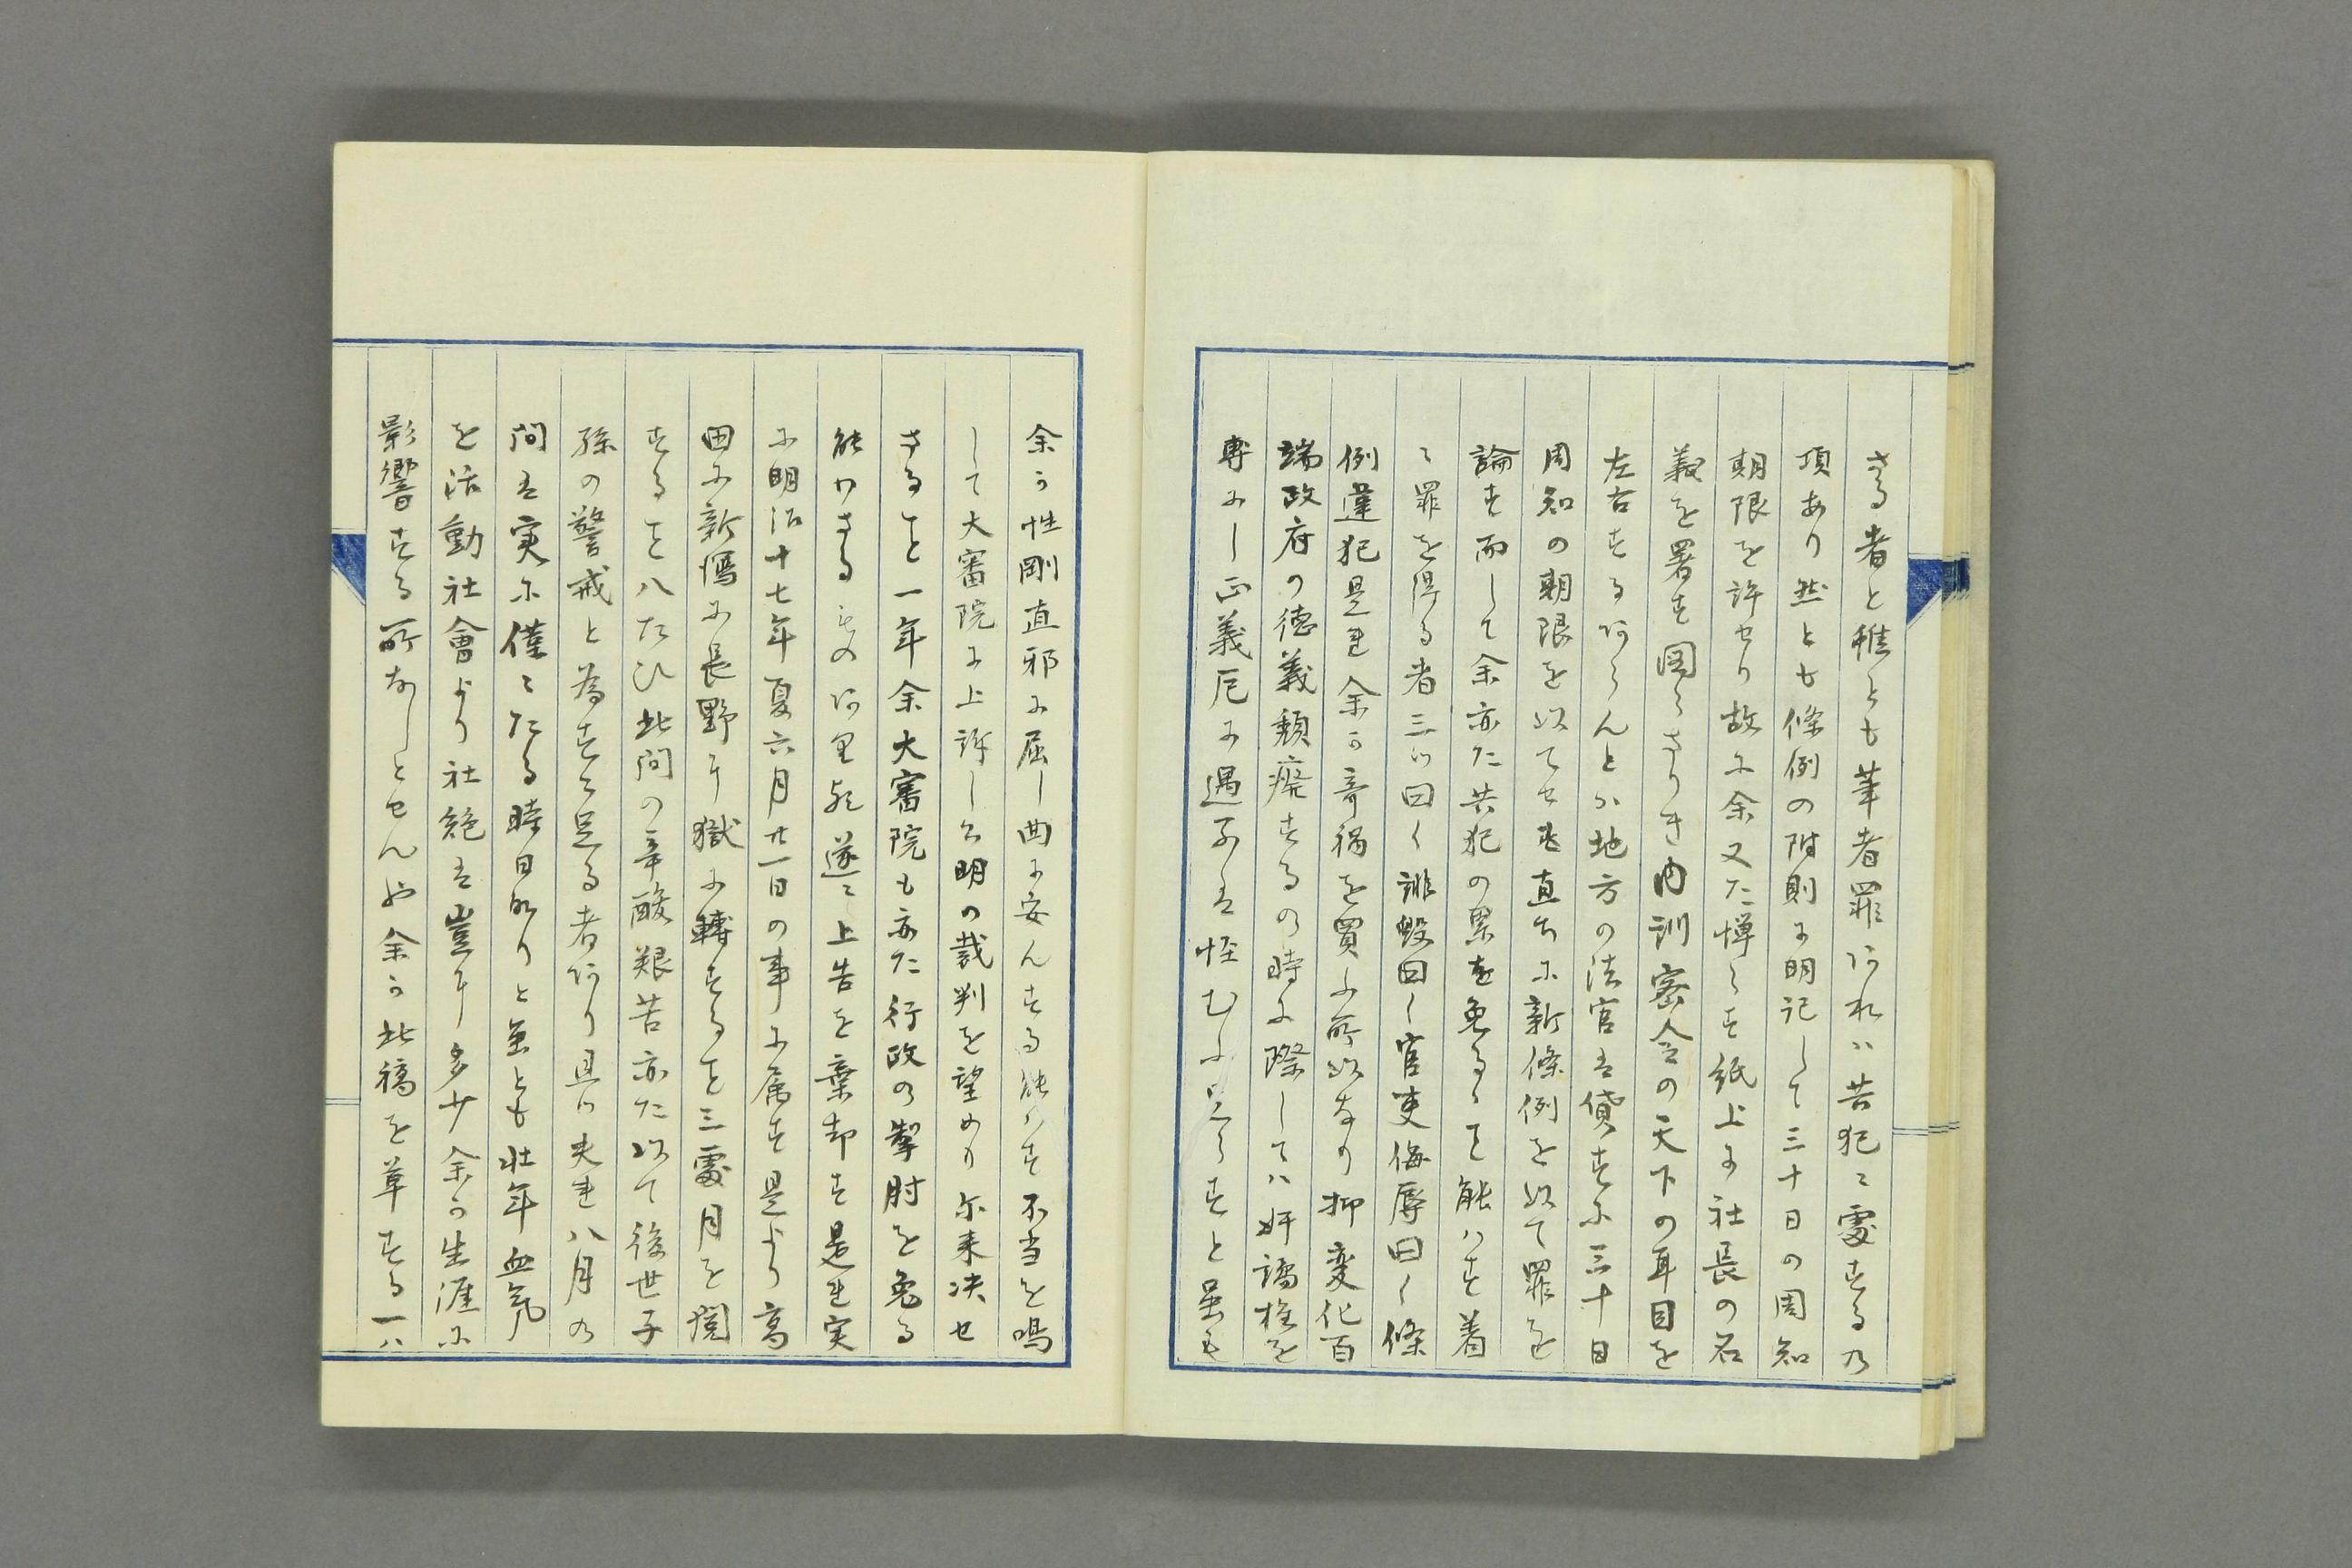 さる者と雖とも筆者罪あれハ苦犯ニ処するの
項あり然とも條例の附則に明記して三十日の周知
期限を許せり故に余又た憚らす紙上に社長の名
義を署す図らさりき内訓密令の天下の耳目を
左右するあらんとハ地方の法官は貸すに三十日
周知の期限を以てせす直ちに新條例を以て罪を
論す而して余亦た共犯の累を免るゝを能ハす着
ニ罪を得る者三つ曰く誹毀曰く官吏侮辱曰く條
例違犯是れ余か奇禍を買ふ所以なり抑変化百
端政府の徳義頽廃するの時に際してハ奸譎権を
専にし正義厄に遇ふは怪むに足らすと雖も
余か性剛直邪に屈し曲に安んする能ハす不当を鳴
して大審院に上訴し公明の裁判を望めり尓来决せ
さるを一年余大審院も亦た行政の掣肘を免る
能ハさるものあり歟遂ニ上告を棄却す是れ実
に明治十七年夏六月廿一日の事に属す是より高
田に新潟に長野に獄に轉するを三處月を閲
するを八たひ此間の辛酸艱苦亦た以て後世子
孫の警戒と為すに足る者あり且つ夫れ八月の
間は実に僅ニたる時日なりと雖とも壮年血気
を活動社會より杜絶は豈に多少余か生涯に
影響する所なしとせんや余か此稿を草する一ハ